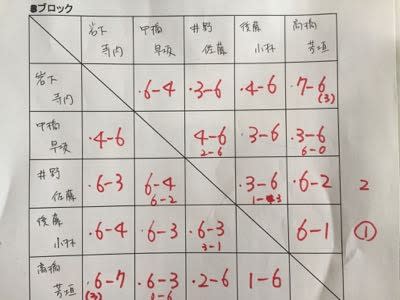 ブロック
岩下 甲橋 井野 後藤 高橋
寺内 早坂 佐藤 小林 芳垣
岩下 ・6-4 ・3-6 ・4-6 ・7-6
寺内 (3)
甲橋 ・4-6 4-6 ・3-6 ・3-6
早坂 2-6 6-0
井野 ・6-3 6-4 ・3-6 ・6-2 2
佐藤 6-2
後藤 ・6-4 ・6-3 ・6-3 6-1 ①
小林 3-1
高橋 ・6-7 ・6-3 ・2-6 1-6
芳垣 (3) 1-6